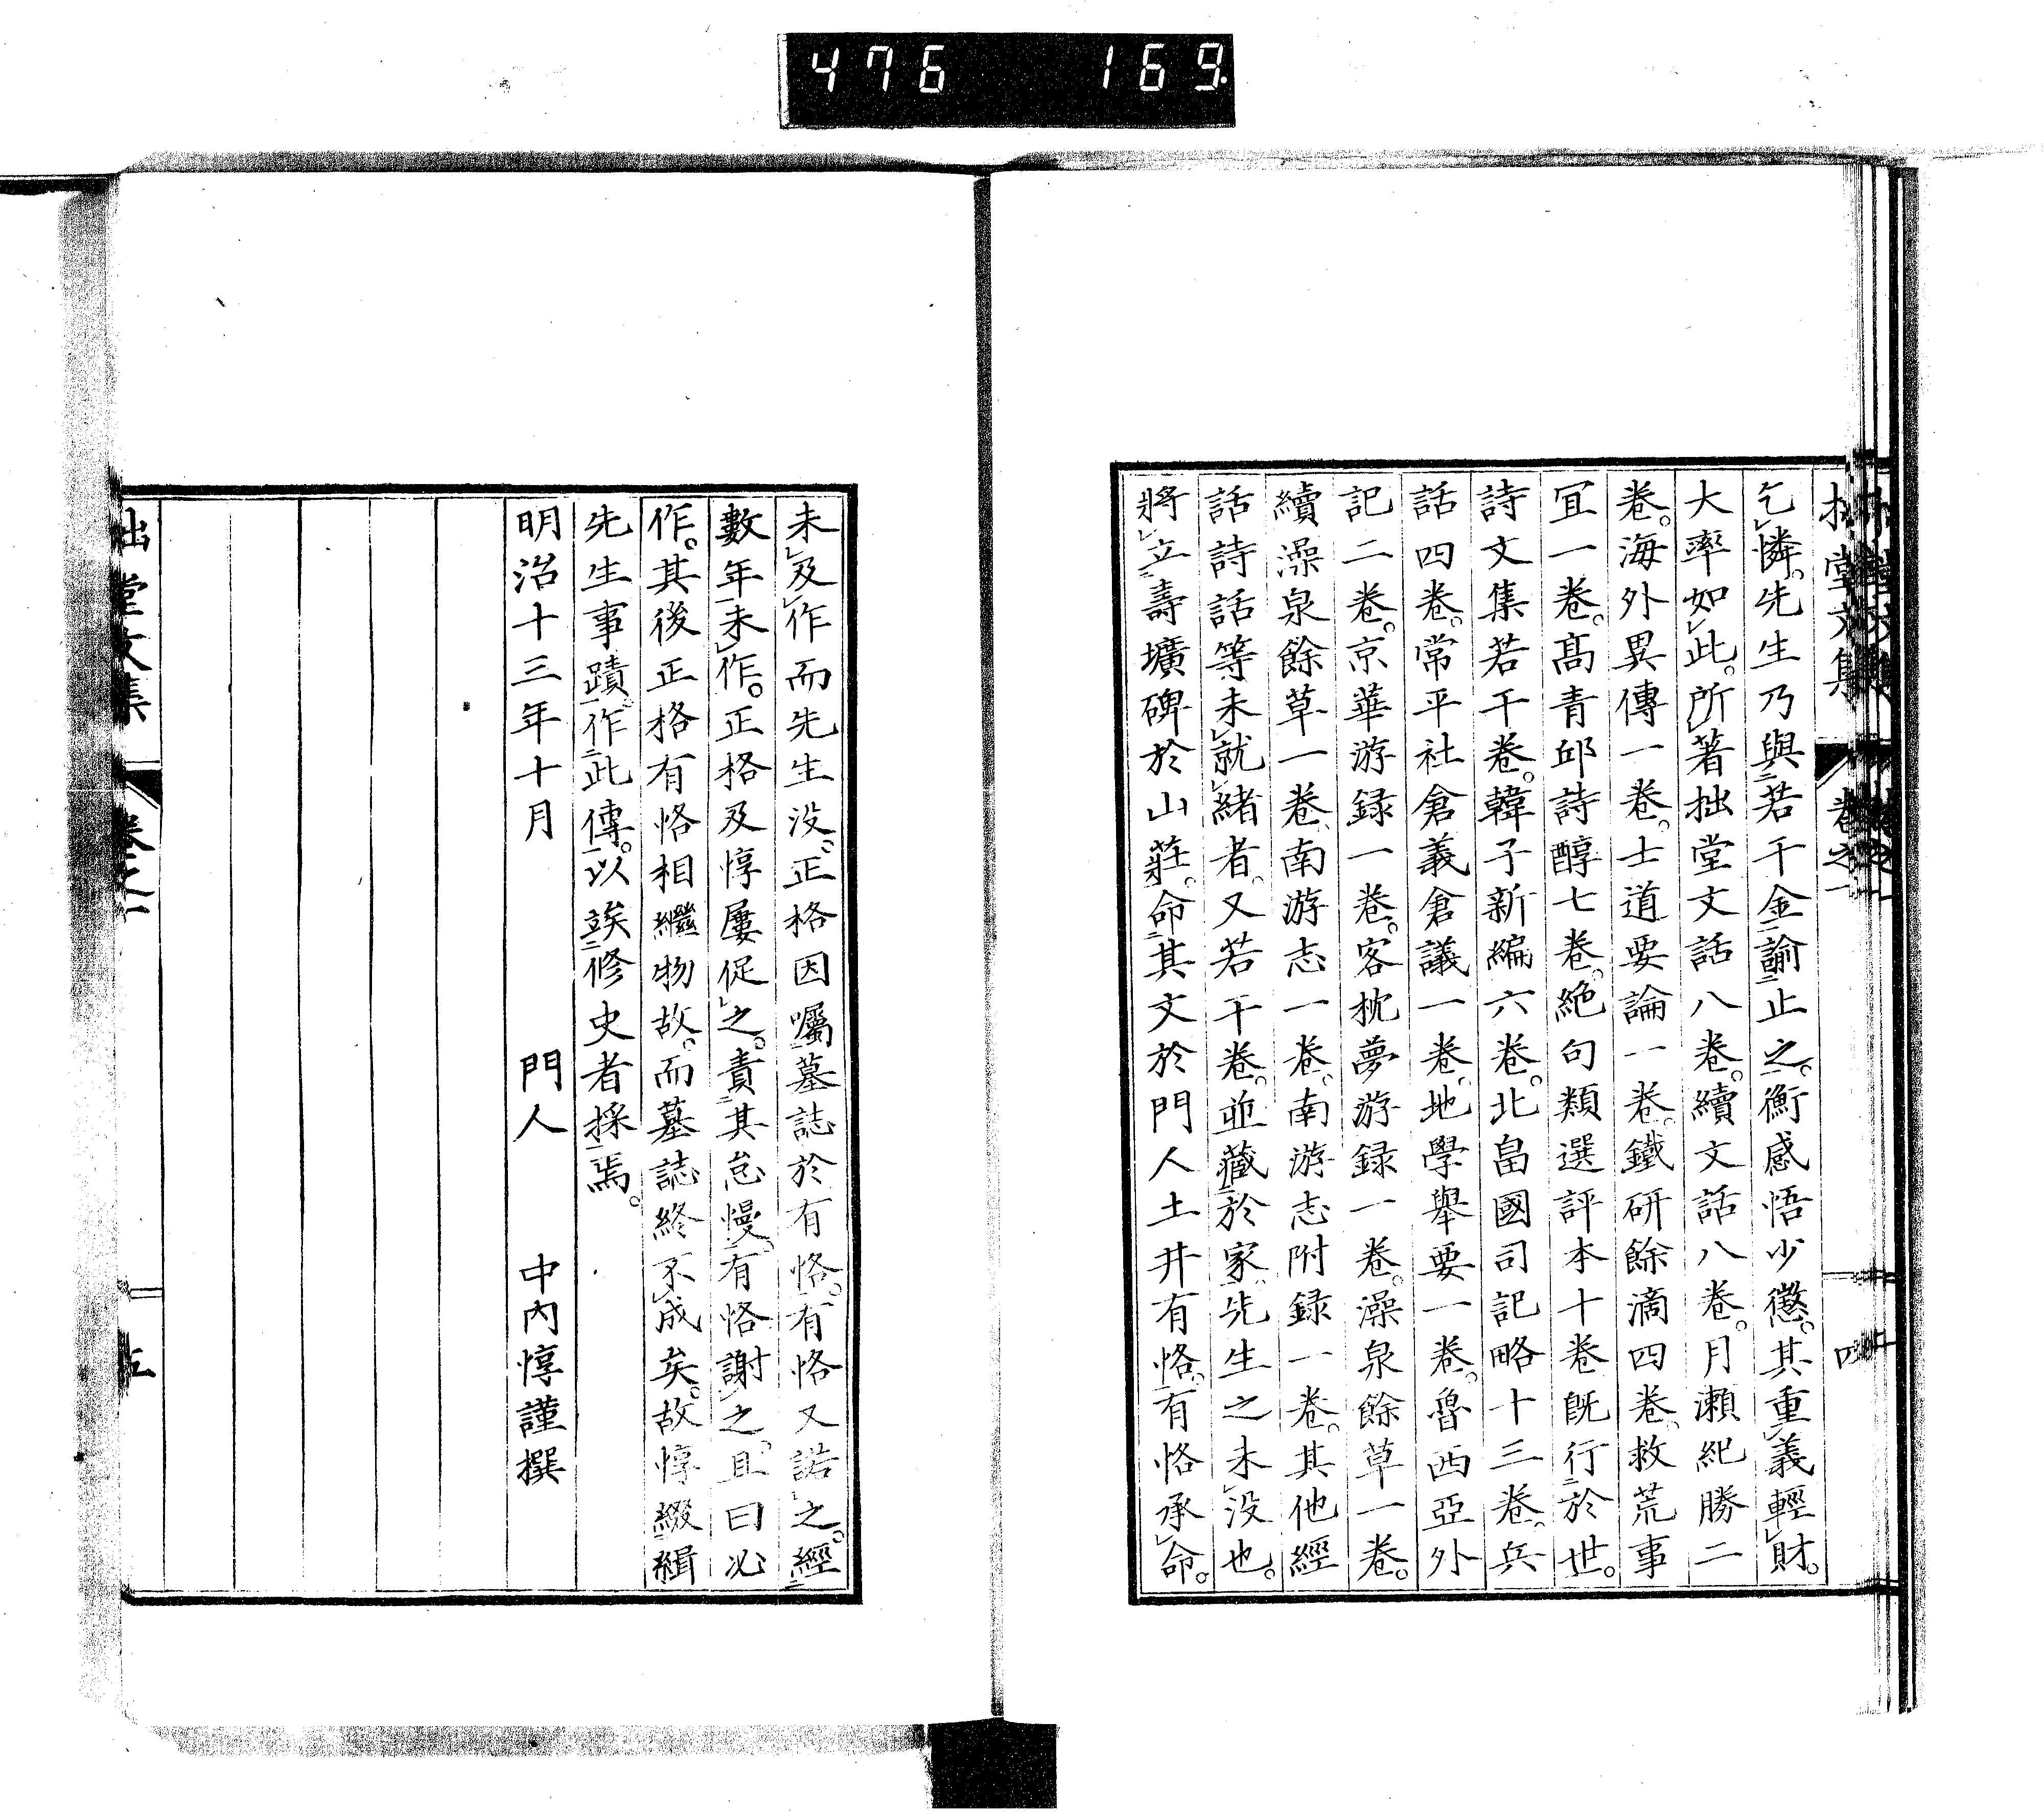 476 169
乞憐。先生乃與若干金諭止之。衡感悟少懲。其重義輕財。
大率如此。所著拙堂文話八卷。續文話八卷。月瀨紀勝二
卷。海外異傳一卷。士道要論一卷。鐵研餘滴四卷。救荒事
宜一卷。高青邱詩醇七卷。絶句類選評本十卷既行於世。
詩文集若干卷。韓子新編六卷。北畠國司記略十三卷。兵
話四卷。常平社倉義倉議一卷。地學舉要一卷。魯西亞外
記二卷。京華游録一卷。客枕夢游録一卷。澡泉餘草一卷。
續澡泉餘草一卷。南游志一卷。南游志附録一卷。其他經
話詩話等未就緒者。又若干卷。並藏於家。先生之未没也。
將立壽壙碑於山莊。命其文於門人土井有恪。有恪承命。
未及作而先生没。正格因囑墓誌於有恪。有恪又諾之。經
數年未作。正格及惇屢促之。責其怠慢。有恪謝之。且曰必
作。其後正格有恪相繼物故。而墓誌終不成矣。故惇綴緝
先生事蹟。作此傳。以竢修史者採焉。
明治十三年十月 門人 中内惇謹撰
拙堂文集 卷之一 五